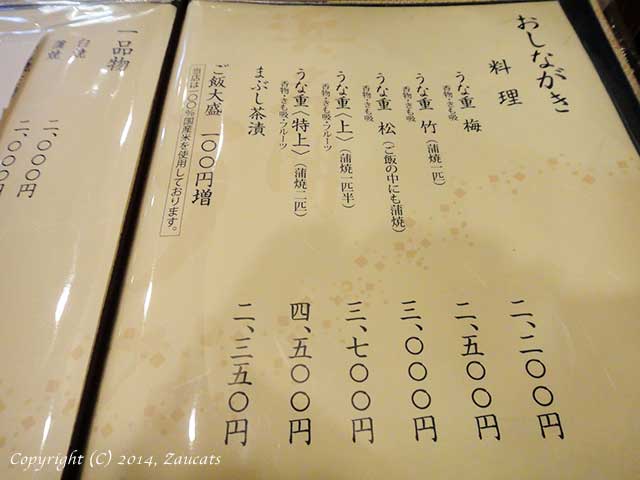 おしながき
料理
うな重 梅
香物・きも吸
二、二〇〇円
うな重 竹（蒲焼一匹）
香物・きも吸
二、五〇〇円
うな重 松（ご飯の中にも蒲焼）
香物・きも吸
三、〇〇〇円
うな重〈上〉（蒲焼一匹半）
香物・きも吸・フルーツ
三、七〇〇円
うな重〈特上〉（蒲焼二匹）
香物・きも吸・フルーツ
四、五〇〇円
まぶし茶漬
二、三五〇円
ご飯大盛 一〇〇円増
当店は一〇〇％国産米を使用しております。
一品物
白焼 二、〇〇〇円
蒲焼 二、〇〇〇円
Copyright (C) 2014, Zaucats